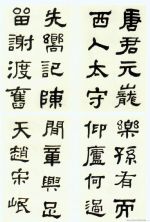 唐君元巖
西人太守
先嚮記陳
留謝渡舊
樂孫有而
仰廬何過
間與足
天趙宋岷